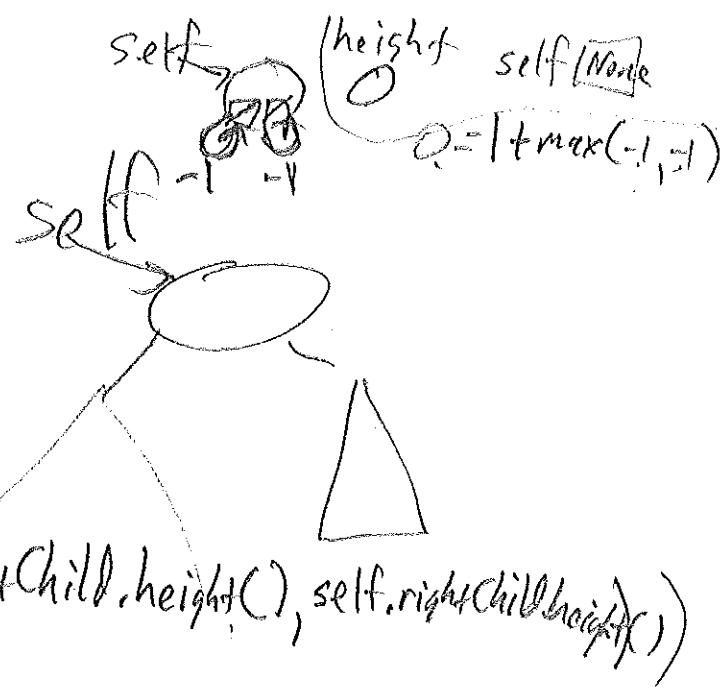 self height self None
0
-1 -1 0 = 1 + max(-1, -1)
self
tChild.height(), self.rightChild.height())